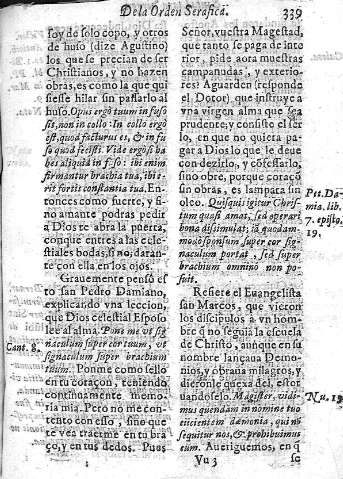 De la Orden Serafica.
339
soy de solo copo, y otros
de huso (dize Agustino)
los que se precian de ser
Christianos, y no hazen
obras, es como la que qui
siesse hilar sin passarlo al
huso. Opus ergo tuum in fuso
sit, non in collo. In collo ergo
est, quod facturus es, & in fu
so quod fecisti. Vide ergo si ha
bes aliquid in fuso: ibi enim
firmantur brachia tua, ibi e-
rit fortis constantia tua. En-
tonces como fuerte, y fi-
no amante podras pedir
a Dios te abra la puerta,
con que entres a las celes-
tiales bodas, si no, darante
con ella en los ojos.
Grauemente pensó es
to san Pedro Damiano,
explicando vna leccion,
que Dios celestial Esposo
lee al alma. Pone me vt sig
naculum super cor tuum, vt
signaculum super brachium
tuum. Ponme como sello
en tu coraçon, teniendo
continuamente memo-
ria mia. Pero no me con-
tento con esso, sino que
te vea traerme en tu bra
ço, y en tus dedos. Pues
Cant. 8.
Señor, vuestra Magestad,
que tanto se paga de inte
rior, pide aora muestras
campanudas, y exterio-
res? Aguarden (responde
el Dotor) que instruye a
vna virgen alma que sea
prudente; y consiste el ser
lo, en que no quiera pa-
gar a Dios lo que le deue
con dezirlo, y cõfessarlo,
sino obre, porque coraçõ
sin obras, es lampara sin
oleo. Quisquis igitur Chris-
tum quasi amat, sed operari
bona dissimulat; iã quodam-
modo sponsum super cor sig
naculum portat, sed super
brachium omnino non po-
suit.
Refiere el Euangelista
san Marcos, que vieron
los discipulos a vn hom-
bre q̃ no seguia la escuela
de Christo, aunque en su
nombre lançaua Demo-
nios, y obraua milagros, y
dieronle quexa del, estor
uandoselo. Magister, vidi-
mus quendam in nomine tuo
eiicientem dæmonia, qui nõ
sequitur nos, & prohibuimus
eum. Aueriguemos, en q̃
Pet. Da-
mia. lib.
7. episto.
19.
Nu. 19
Vu 3
se